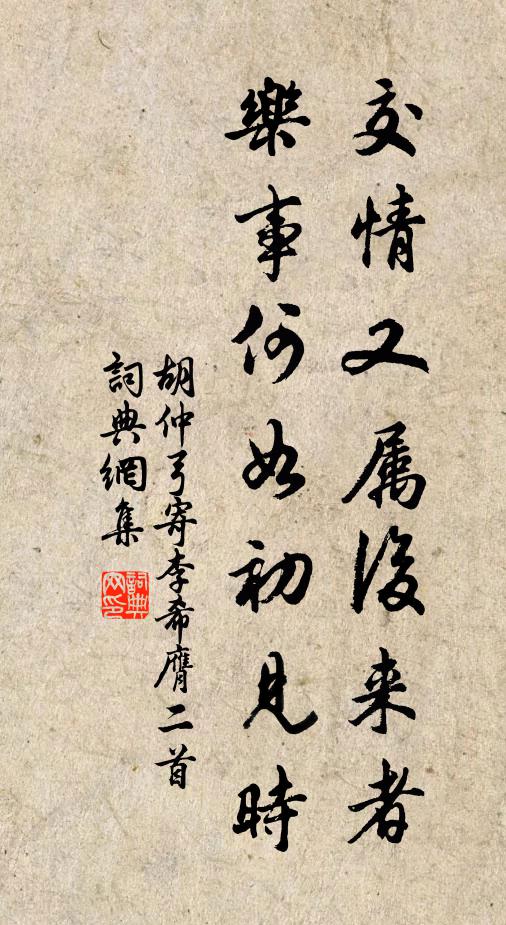 交情又属後来者
樂事何如初見時
胡仲弓寄李希膺二首
詞典網集
詞典网印